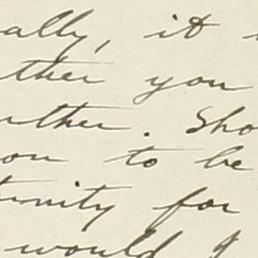 ally, it
ther you
rther. Sho
on to be
tunity for
would